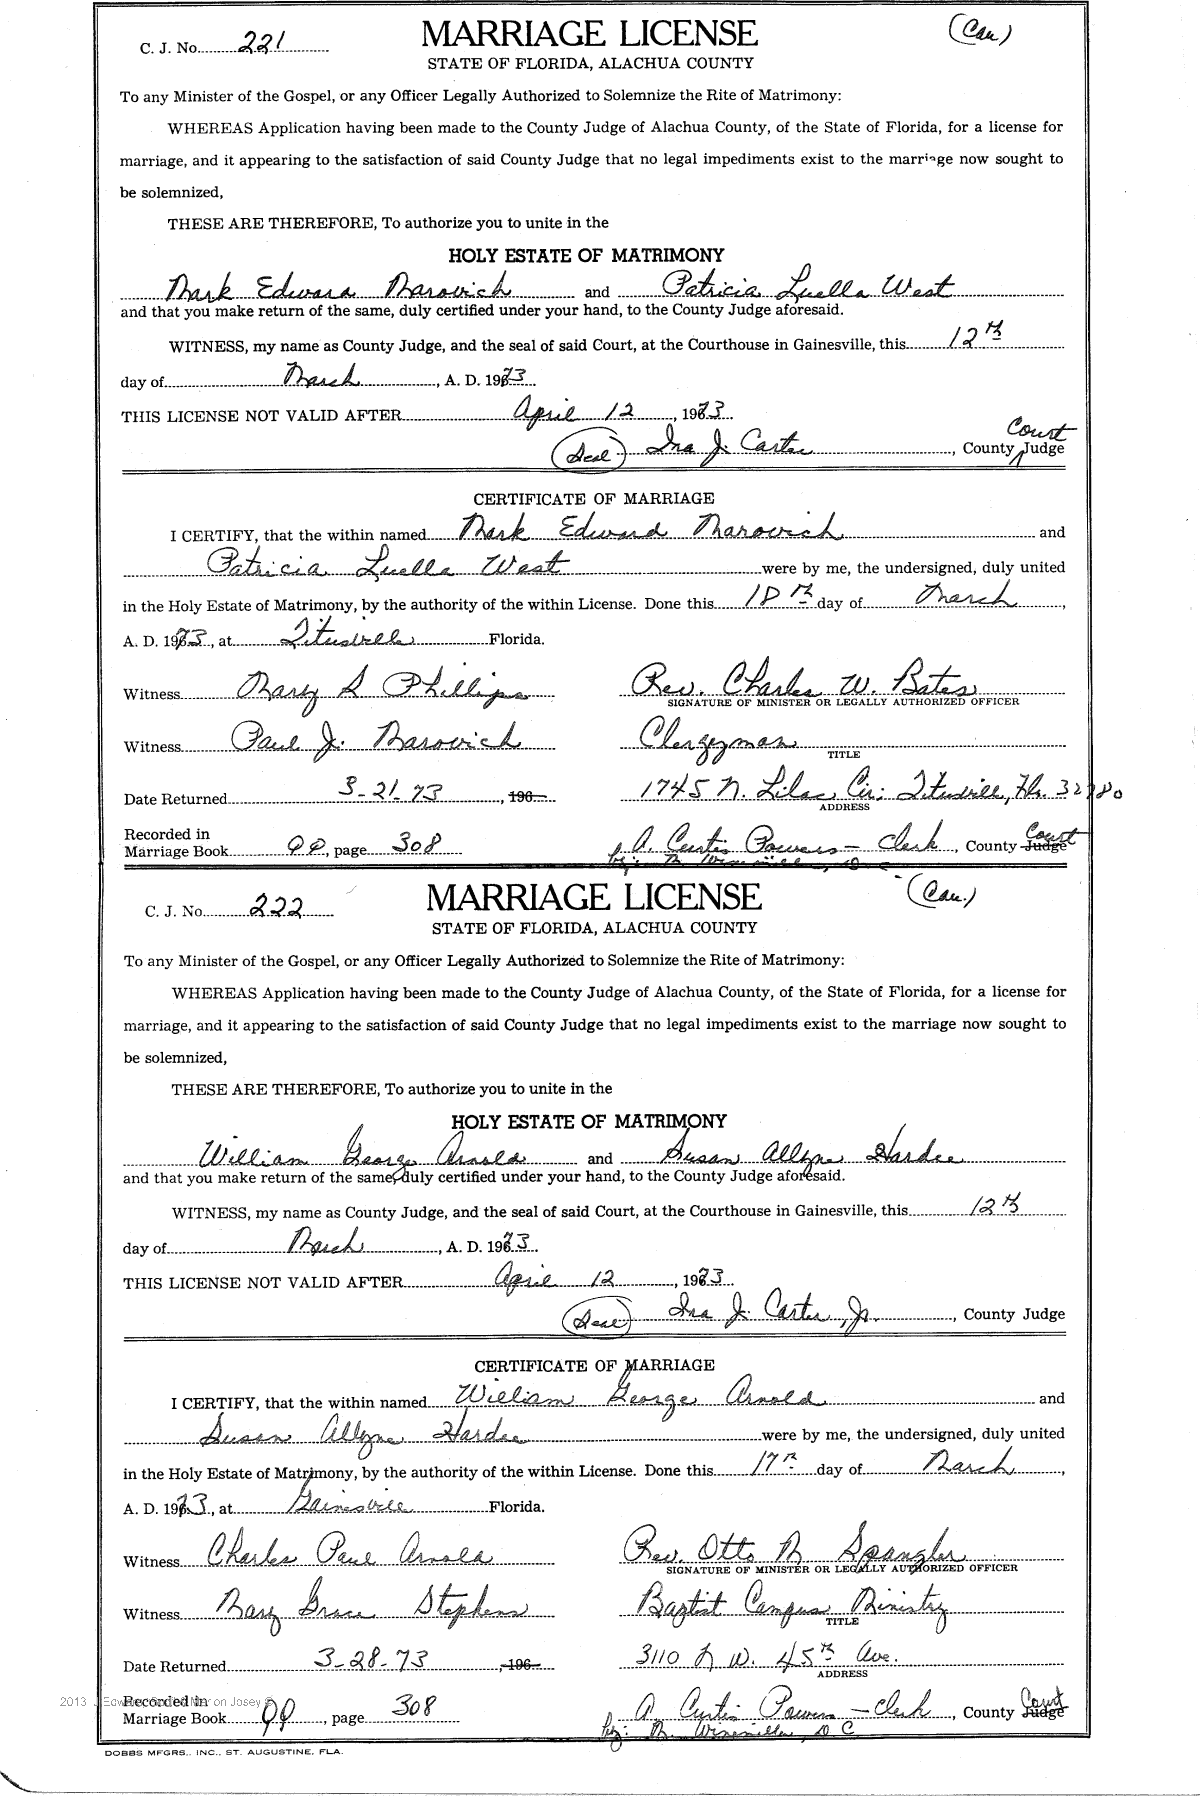 C. J. No. 221 MARRIAGE LICENSE (Cau)
STATE OF FLORIDA, ALACHUA COUNTY
To any Minister of the Gospel, or any Officer Legally Authorized to Solemnize the Rite of Matrimony:
WHEREAS Application having been made to the County Judge of Alachua County, of the State of Florida, for a license for
marriage, and it appearing to the satisfaction of said County Judge that no legal impediments exist to the marriage now sought to
be solemnized,
THESE ARE THEREFORE, To authorize you to unite in the
HOLY ESTATE OF MATRIMONY
Mark Edward Marovich and Patricia Luella West
and that you make return of the same, duly certified under your hand, to the County Judge aforesaid.
WITNESS, my name as County Judge, and the seal of said Court, at the Courthouse in Gainesville, this 12th
day of March, A. D. 1973.
THIS LICENSE NOT VALID AFTER April 12, 1973.
(Seal) Ira J. Carter, County Court Judge
CERTIFICATE OF MARRIAGE
I CERTIFY, that the within named Mark Edward Marovich and
Patricia Luella West were by me, the undersigned, duly united
in the Holy Estate of Matrimony, by the authority of the within License. Done this 18th day of March,
A. D. 1973, at Titusville Florida.
Witness Mary S Phillips Rev. Charles W. Bates
SIGNATURE OF MINISTER OR LEGALLY AUTHORIZED OFFICER
Witness Paul J. Marovich Clergyman
TITLE
Date Returned 3-21-73, 196 1745 N. Lilac Cir; Titusville, Fla. 32780
ADDRESS
Recorded in
Marriage Book QQ, page 308 A. Curtis Powers - Clerk, County Court Judge
by: M.
C. J. No. 222 MARRIAGE LICENSE (Cau.)
STATE OF FLORIDA, ALACHUA COUNTY
To any Minister of the Gospel, or any Officer Legally Authorized to Solemnize the Rite of Matrimony:
WHEREAS Application having been made to the County Judge of Alachua County, of the State of Florida, for a license for
marriage, and it appearing to the satisfaction of said County Judge that no legal impediments exist to the marriage now sought to
be solemnized,
THESE ARE THEREFORE, To authorize you to unite in the
HOLY ESTATE OF MATRIMONY
William George Arnold and Susan Allyne Hardee
and that you make return of the same, duly certified under your hand, to the County Judge aforesaid.
WITNESS, my name as County Judge, and the seal of said Court, at the Courthouse in Gainesville, this 12th
day of March, A. D. 1973.
THIS LICENSE NOT VALID AFTER April 12, 1973.
(Seal) Ira J. Carter, Jr., County Judge
CERTIFICATE OF MARRIAGE
I CERTIFY, that the within named William George Arnold and
Susan Allyne Hardee were by me, the undersigned, duly united
in the Holy Estate of Matrimony, by the authority of the within License. Done this 17th day of March,
A. D. 1973, at Gainesville Florida.
Witness Charles Paul Arnold Rev. Otto M Spangler
SIGNATURE OF MINISTER OR LEGALLY AUTHORIZED OFFICER
Witness Mary Grace Stephens Baptist Campus Ministry
TITLE
Date Returned 3-28-73, 196 3110 N W. 45th Ave.
ADDRESS
Recorded in
Marriage Book QQ, page 308 A Curtis Powers - Clerk, County Court Judge
by: M. D C
DOBBS MFGRS., INC., ST. AUGUSTINE, FLA.